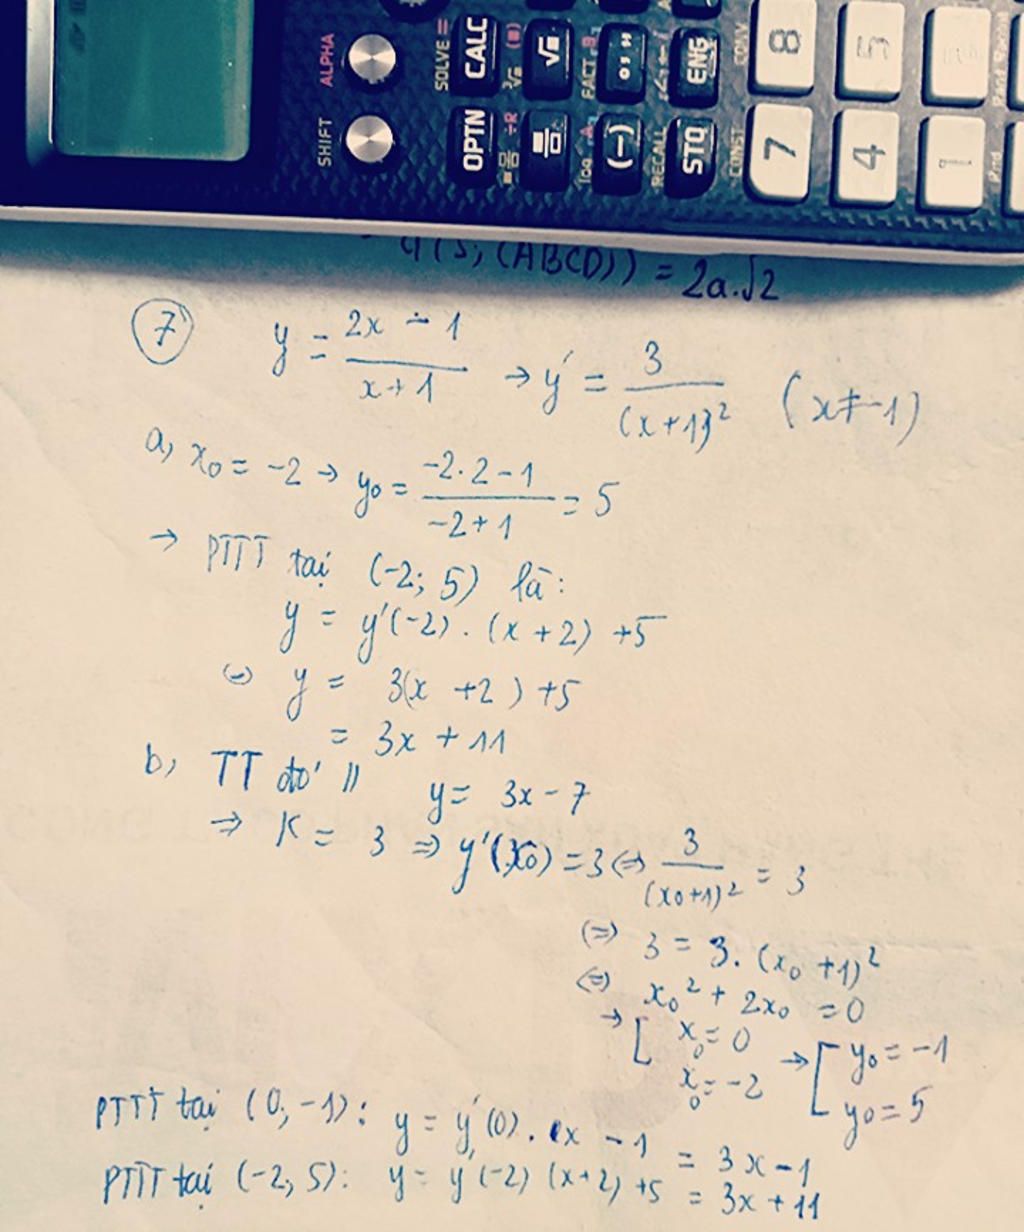 ALPHA SOLVE = CALC √■ FACT B ° ' '' ENG CONV 8 5
SHIFT OPTN ÷R log A (-) RECALL STO CONST 7 4 1
(ABCD)) = 2a.√2
7 y = (2x - 1)/(x+1) → y' = 3/(x+1)² (x≠-1)
a, x₀ = -2 → y₀ = (-2.2-1)/(-2+1) = 5
→ PTTT tại (-2; 5) là:
y = y'(-2).(x+2)+5
(=) y = 3(x +2)+5
= 3x + 11
b, TT đó // y= 3x-7
⇒ K = 3 ⇒ y'(x₀) =3 (=) 3/(x₀+1)² = 3
(=) 3 = 3.(x₀ +1)²
(=) x₀² + 2x₀ = 0
→ [ x₀ = 0 → [ y₀ = -1
x₀ = -2 y₀ = 5
PTTT tại (0,-1): y = y'(0). x - 1 = 3x-1
PTTT tại (-2,5): y = y'(-2) (x+2) +5 = 3x + 11